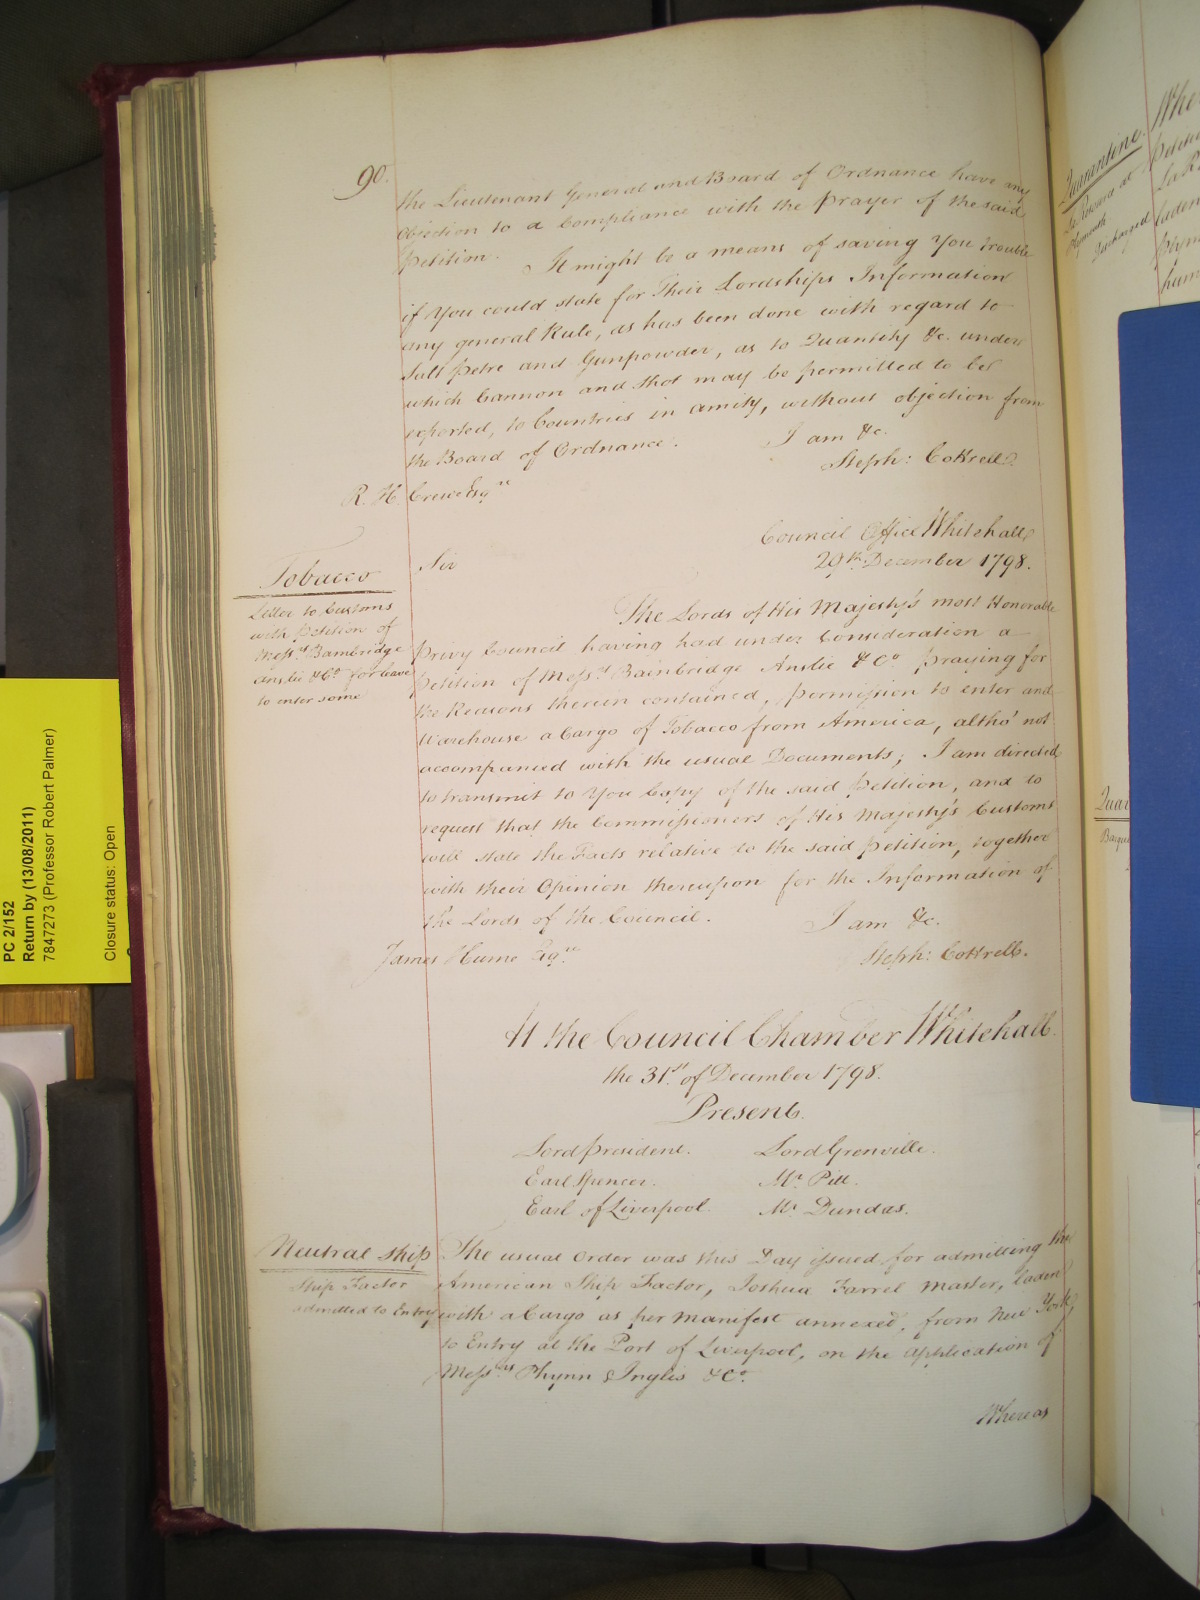 90.
the Lieutenant General and Board of Ordnance have any
objection to a Compliance with the Prayer of the said
Petition. It might be a means of saving You trouble
if You could state for Their Lordships Information
any general Rule, as has been done with regard to
Salt Petre and Gunpowder, as to Quantity &c. under
which Cannon and Shot may be permitted to be
exported, to Countries in amity, without objection from
the Board of Ordnance.
I am &c.
Steph: Cottrell.
R. H. Crewe Esqre
Council Office Whitehall
29th December 1798.
Tobacco
Letter to Customs
with Petition of
Messrs Bambridge
Anslie & Co. for leave
to enter some
Sir
The Lords of His Majesty's most Honorable
Privy Council having had under Consideration a
Petition of Messrs Bainbridge Anslie & Co praying for
the Reasons therein contained, permission to enter and
Warehouse a Cargo of Tobacco from America, altho' not
accompanied with the usual Documents; I am directed
to transmit to You Copy of the said Petition, and to
request that the Commissioners of His Majesty's Customs
will state the Facts relative to the said Petition, together
with their Opinion thereupon for the Information of
the Lords of the Council.
I am &c.
Steph: Cottrell.
James Hume Esqre
At the Council Chamber Whitehall
the 31st of December 1798.
Present.
Lord President. Lord Grenville.
Earl Spencer. Mr Pitt.
Earl of Liverpool. Mr Dundas.
Neutral Ship
Ship Factor
admitted to Entry
The usual Order was this Day issued for admitting the
American Ship Factor, Joshua Farrel Master, laden
with a Cargo as per Manifest annexed, from New York,
to Entry at the Port of Liverpool, on the Application of
Messrs Phynn & Ingles & Co.
Whereas
Quarantine
Plymouth
discharged
PC 2/152
Return by (13/08/2011)
7847273 (Professor Robert Palmer)
Closure status: Open